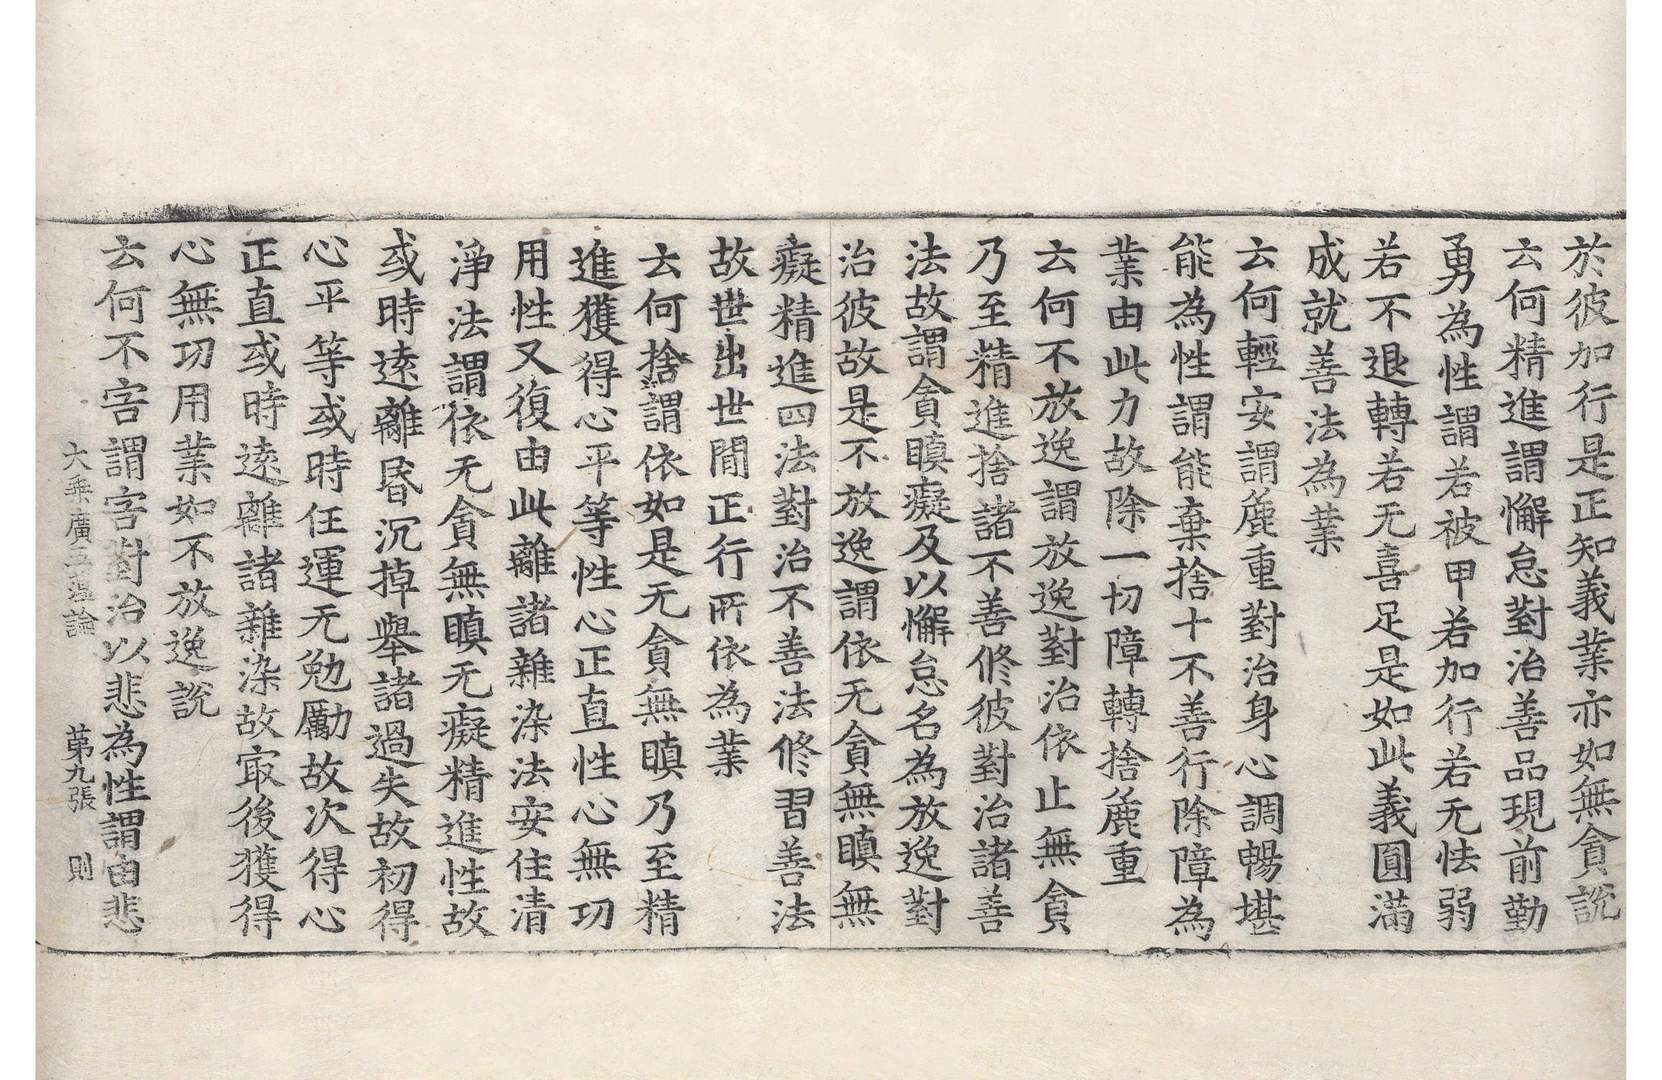 於彼加行是正知義業亦如無貪說
云何精進謂懈怠對治善品現前勤
勇為性謂若被甲若加行若无怯弱
若不退轉若无喜足是如此義圓滿
成就善法為業
云何輕安謂麁重對治身心調暢堪
能為性謂能棄捨十不善行除障為
業由此力故除一切障轉捨麁重
云何不放逸謂放逸對治依止無貪
乃至精進捨諸不善修彼對治諸善
法故謂貪瞋癡及以懈怠名為放逸對
治彼故是不放逸謂依无貪無瞋無
癡精進四法對治不善法修習善法
故世出世間正行所依為業
云何捨謂依如是无貪無瞋乃至精
進獲得心平等性心正直性心無功
用性又復由此離諸雜染法安住清
淨法謂依无貪無瞋无癡精進性故
或時遠離昏沉掉舉諸過失故初得
心平等或時任運无勉勵故次得心
正直或時遠離諸雜染故㝡後獲得
心無功用業如不放逸說
云何不害謂害對治以悲為性謂由悲
大乘廣五蘊論 第九張 則